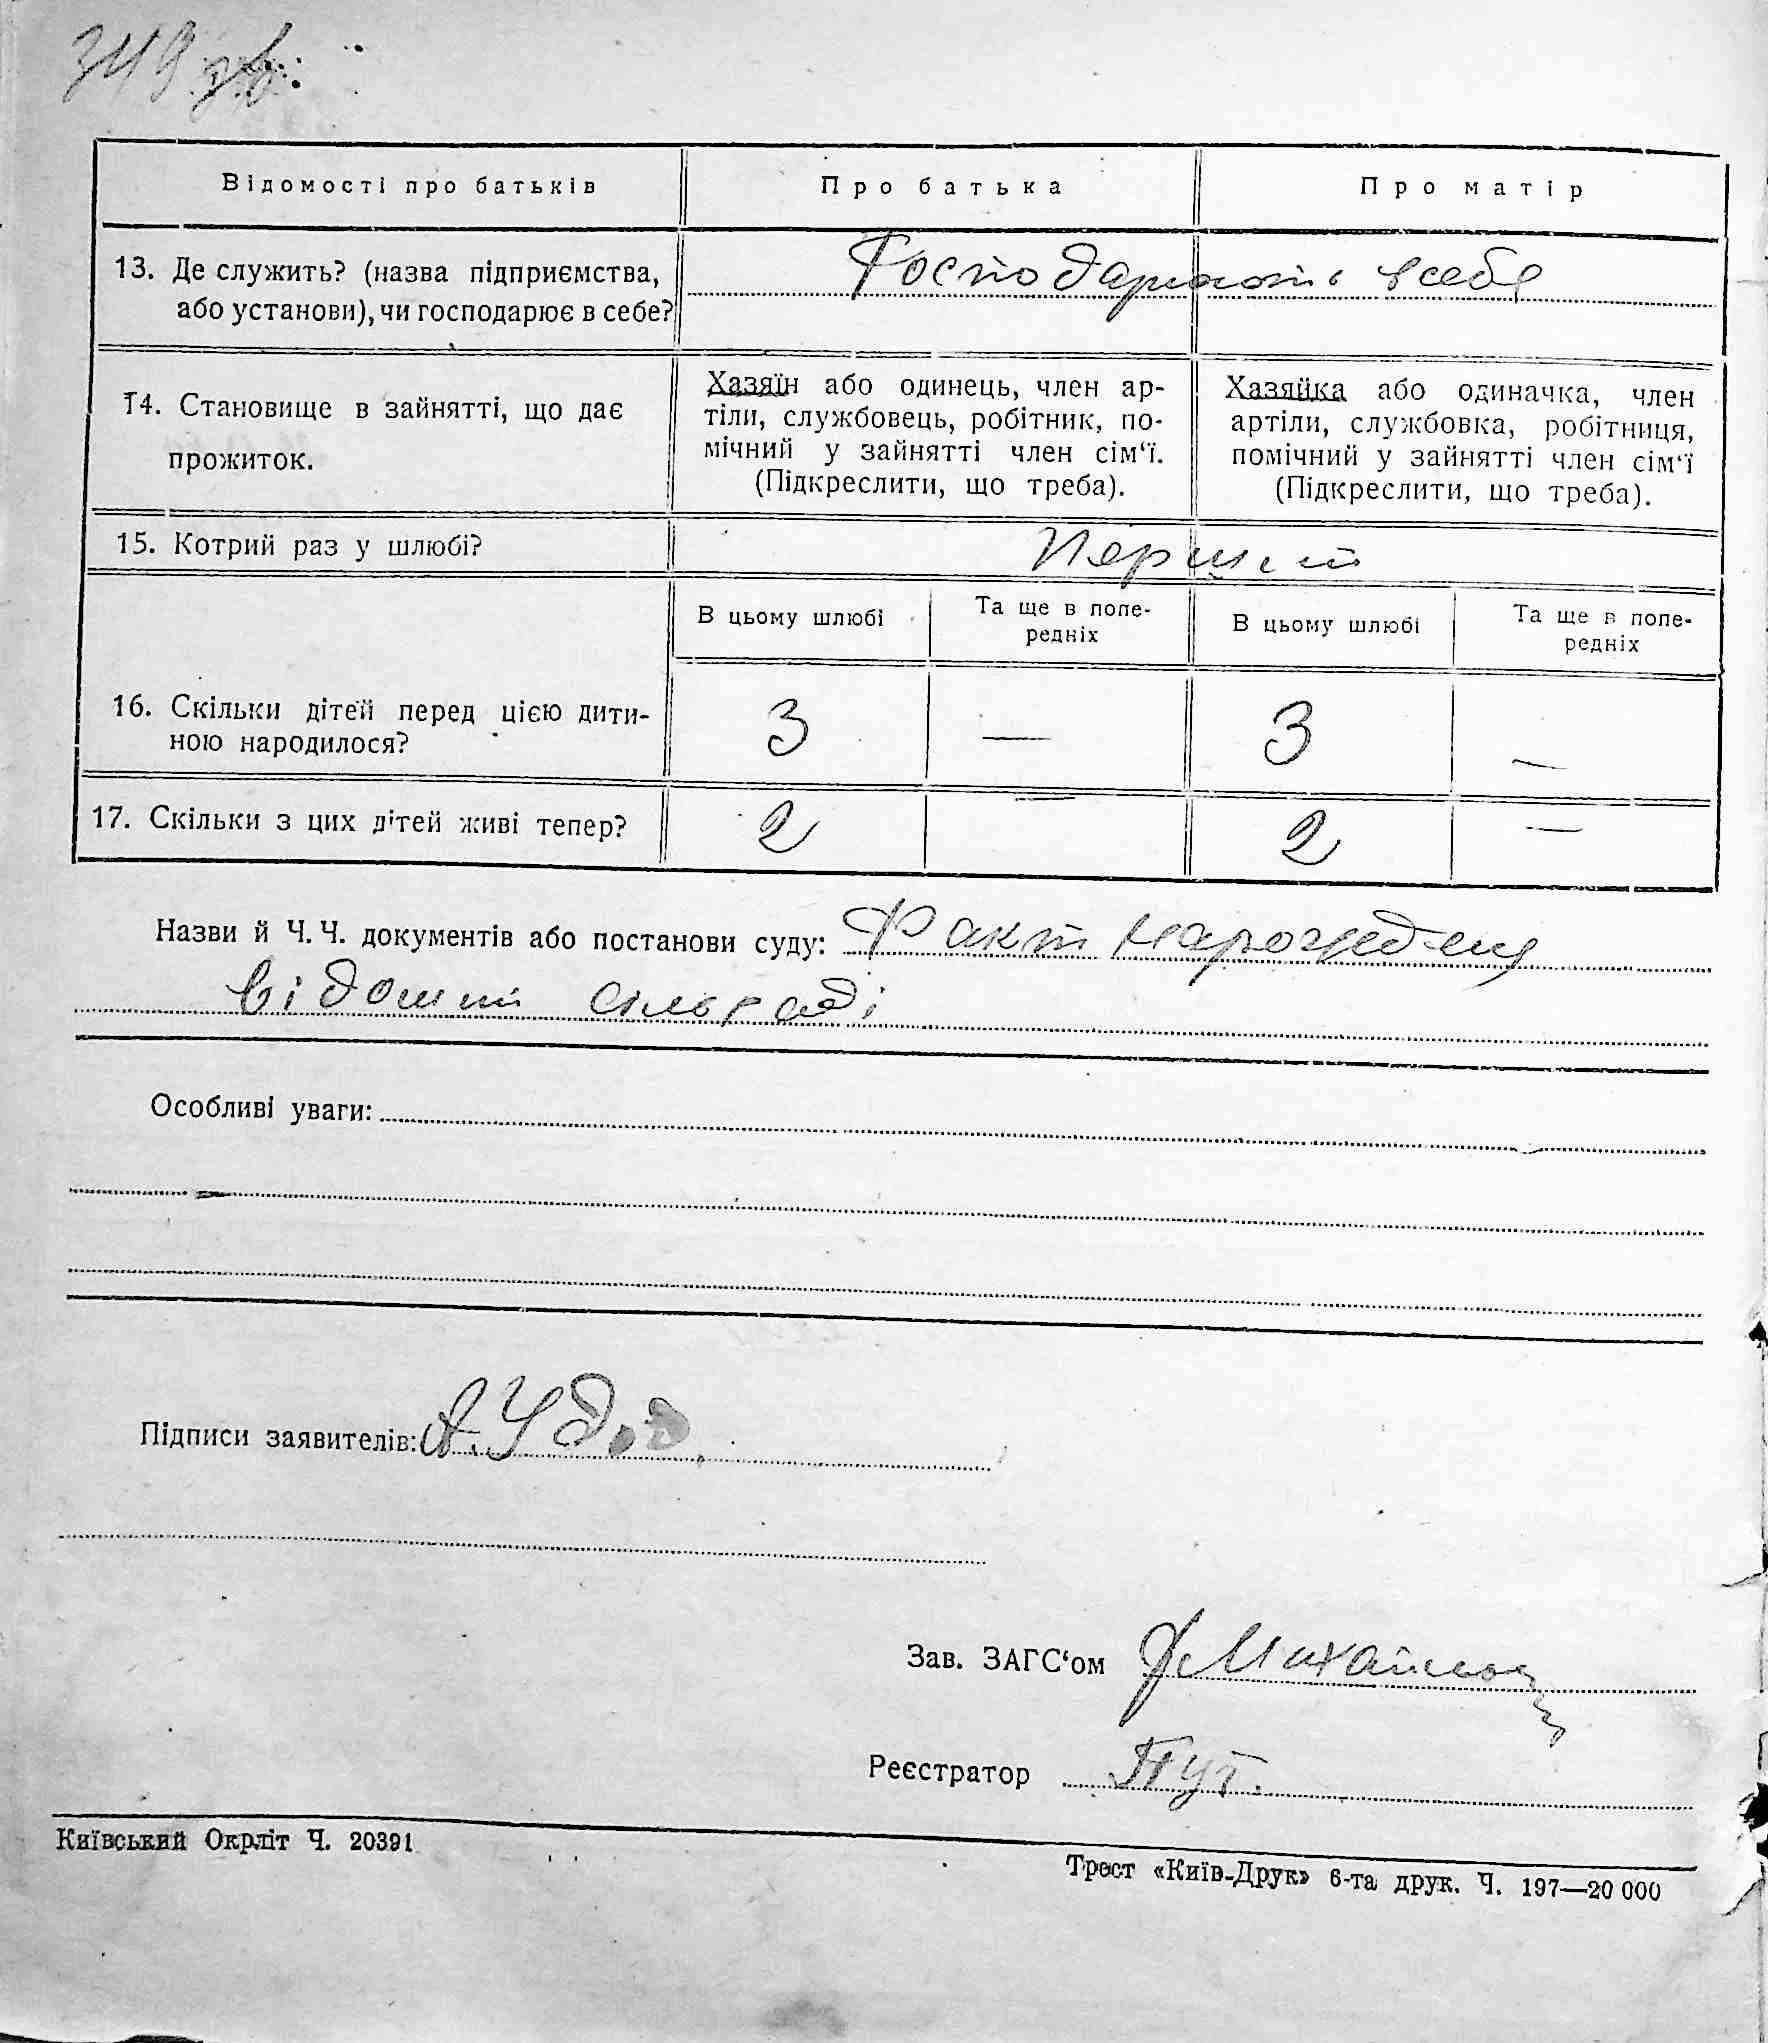 349 зв.
Відомості про батьків
Про батька
Про матір
13. Де служить? (назва підприємства,
або установи), чи господарює в себе?
Господарюють в себе
14. Становище в зайнятті, що дає
прожиток.
Хазяїн або одинець, член ар-
тіли, службовець, робітник, по-
мічний у зайнятті член сім‘ї.
(Підкреслити, що треба).
Хазяйка або одиначка, член
артіли, службовка, робітниця,
помічний у зайнятті член сім‘ї
(Підкреслити, що треба).
15. Котрий раз у шлюбі?
Перший
В цьому шлюбі
Та ще в попе-
редніх
В цьому шлюбі
Та ще в попе-
редніх
16. Скільки дітей перед цією дити-
ною народилося?
3 — 3 —
17. Скільки з цих дітей живі тепер?
2 — 2 —
Назви й Ч. Ч. документів або постанови суду: Факт народження
відомий сільраді
Особливі уваги:
Підписи заявителів: А. Удод
Зав. ЗАГС‘ом
Реєстратор Пут.
Київський Окрліт Ч. 20391
Трест «Київ-Друк» 6-та друк. Ч. 197—20 000